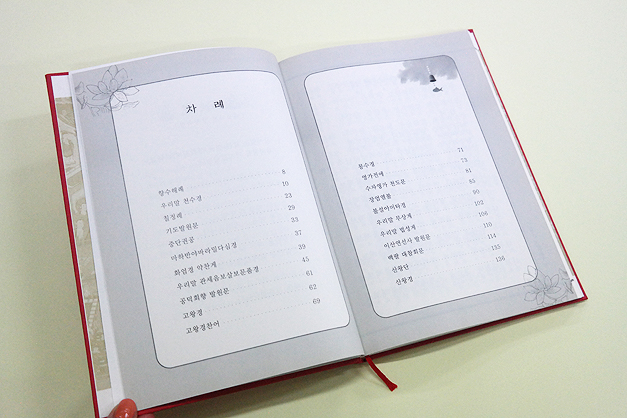 차 례
향수해례 8
우리말 천수경 10
칠정례 23
기도발원문 29
중단권공 33
마하반야바라밀다심경 37
화엄경 약찬게 39
우리말 관세음보살보문품경 45
공덕회향 발원문 61
고왕경 62
고왕경찬어 69
71
영가전에 73
수자영가 천도문 81
장엄염불 85
불설아미타경 90
우리말 무상계 102
우리말 법성게 106
이산연선사 발원문 110
백팔 대참회문 114
산왕단 135
산왕경 136